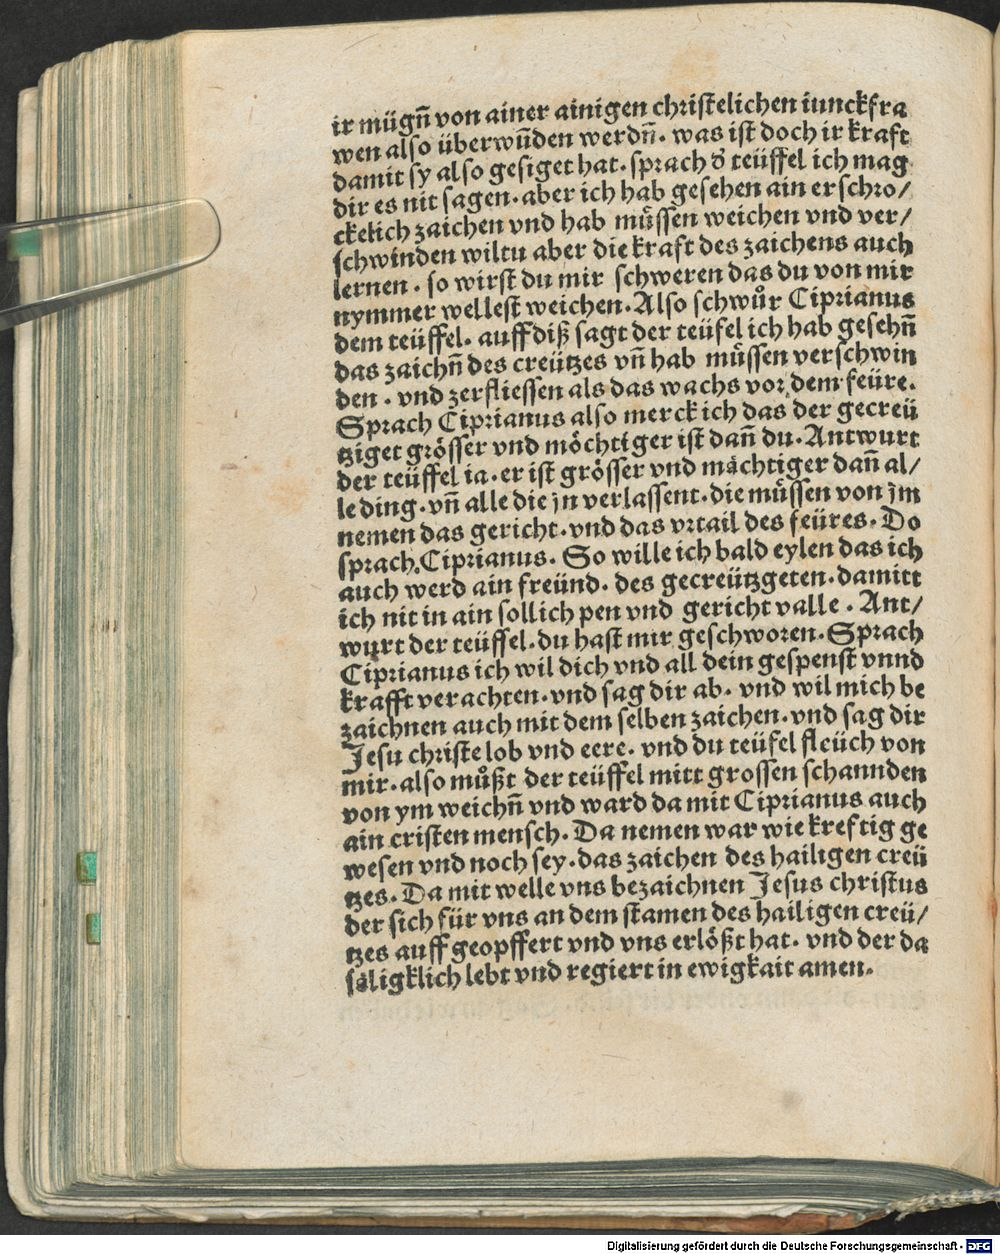 ir mügn̄ von ainer ainigen christelichen iunckfra
wen also überwūden werdn̄. was ist doch ir kraft
damit sy also gesiget hat. sprach d̕ teüffel ich mag
dir es nit sagen. aber ich hab gesehen ain erschro/
ckelich zaichen vnd hab müssen weichen vnd ver/
schwinden wiltu aber die kraft des zaichens auch
lernen. so wirst du mir schweren das du von mir
nymmer wellest weichen. Also schwůr Ciprianus
dem teüffel. auff diß sagt der teüfel ich hab gesehn̄
das zaichn̄ des creützes vn̄ hab müssen verschwin
den. vnd zerfliessen als das wachs vor dem feüre.
Sprach Ciprianus also merck ich das der gecreü
tziget grösser vnd möchtiger ist dan̄ du. Antwurt
der teüffel ia. er ist grösser vnd mächtiger dan̄ al/
le ding. vn̄ alle die jn verlassent. die müssen von jm
nemen das gericht. vnd das vrtail des feüres. Do
sprach Ciprianus. So wille ich bald eylen das ich
auch werd ain freünd. des gecreützgeten. damitt
ich nit in ain sollich pen vnd gericht valle. Ant/
wurt der teüffel. du hast mir geschworen. Sprach
Ciprianus ich wil dich vnd all dein gespenst vnnd
krafft verachten. vnd sag dir ab. vnd wil mich be
zaichnen auch mit dem selben zaichen. vnd sag dir
Jesu christe lob vnd eere. vnd du teüfel fleüch von
mir. also můßt der teüffel mitt grossen schannden
von ym weichn̄ vnd ward da mit Ciprianus auch
ain cristen mensch. Da nemen war wie kreftig ge
wesen vnd noch sey. das zaichen des hailigen creü
tzes. Da mit welle vns bezaichnen Jesus christus
der sich für vns an dem stamen des hailigen creü/
tzes auff geopffert vnd vns erlößt hat. vnd der da
säligklich lebt vnd regiert in ewigkait amen.
Digitalisierung gefördert durch die Deutsche Forschungsgemeinschaft - DFG